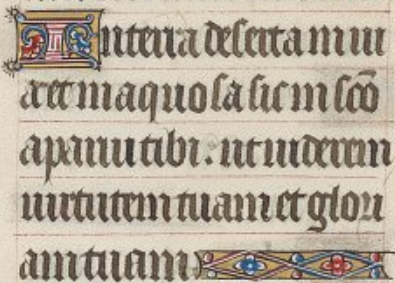 In terra deserta in ui
a et in aquosa sic in sc̄o
aparui tibi. ut uiderem
uirtutem tuam et glori
am tuam